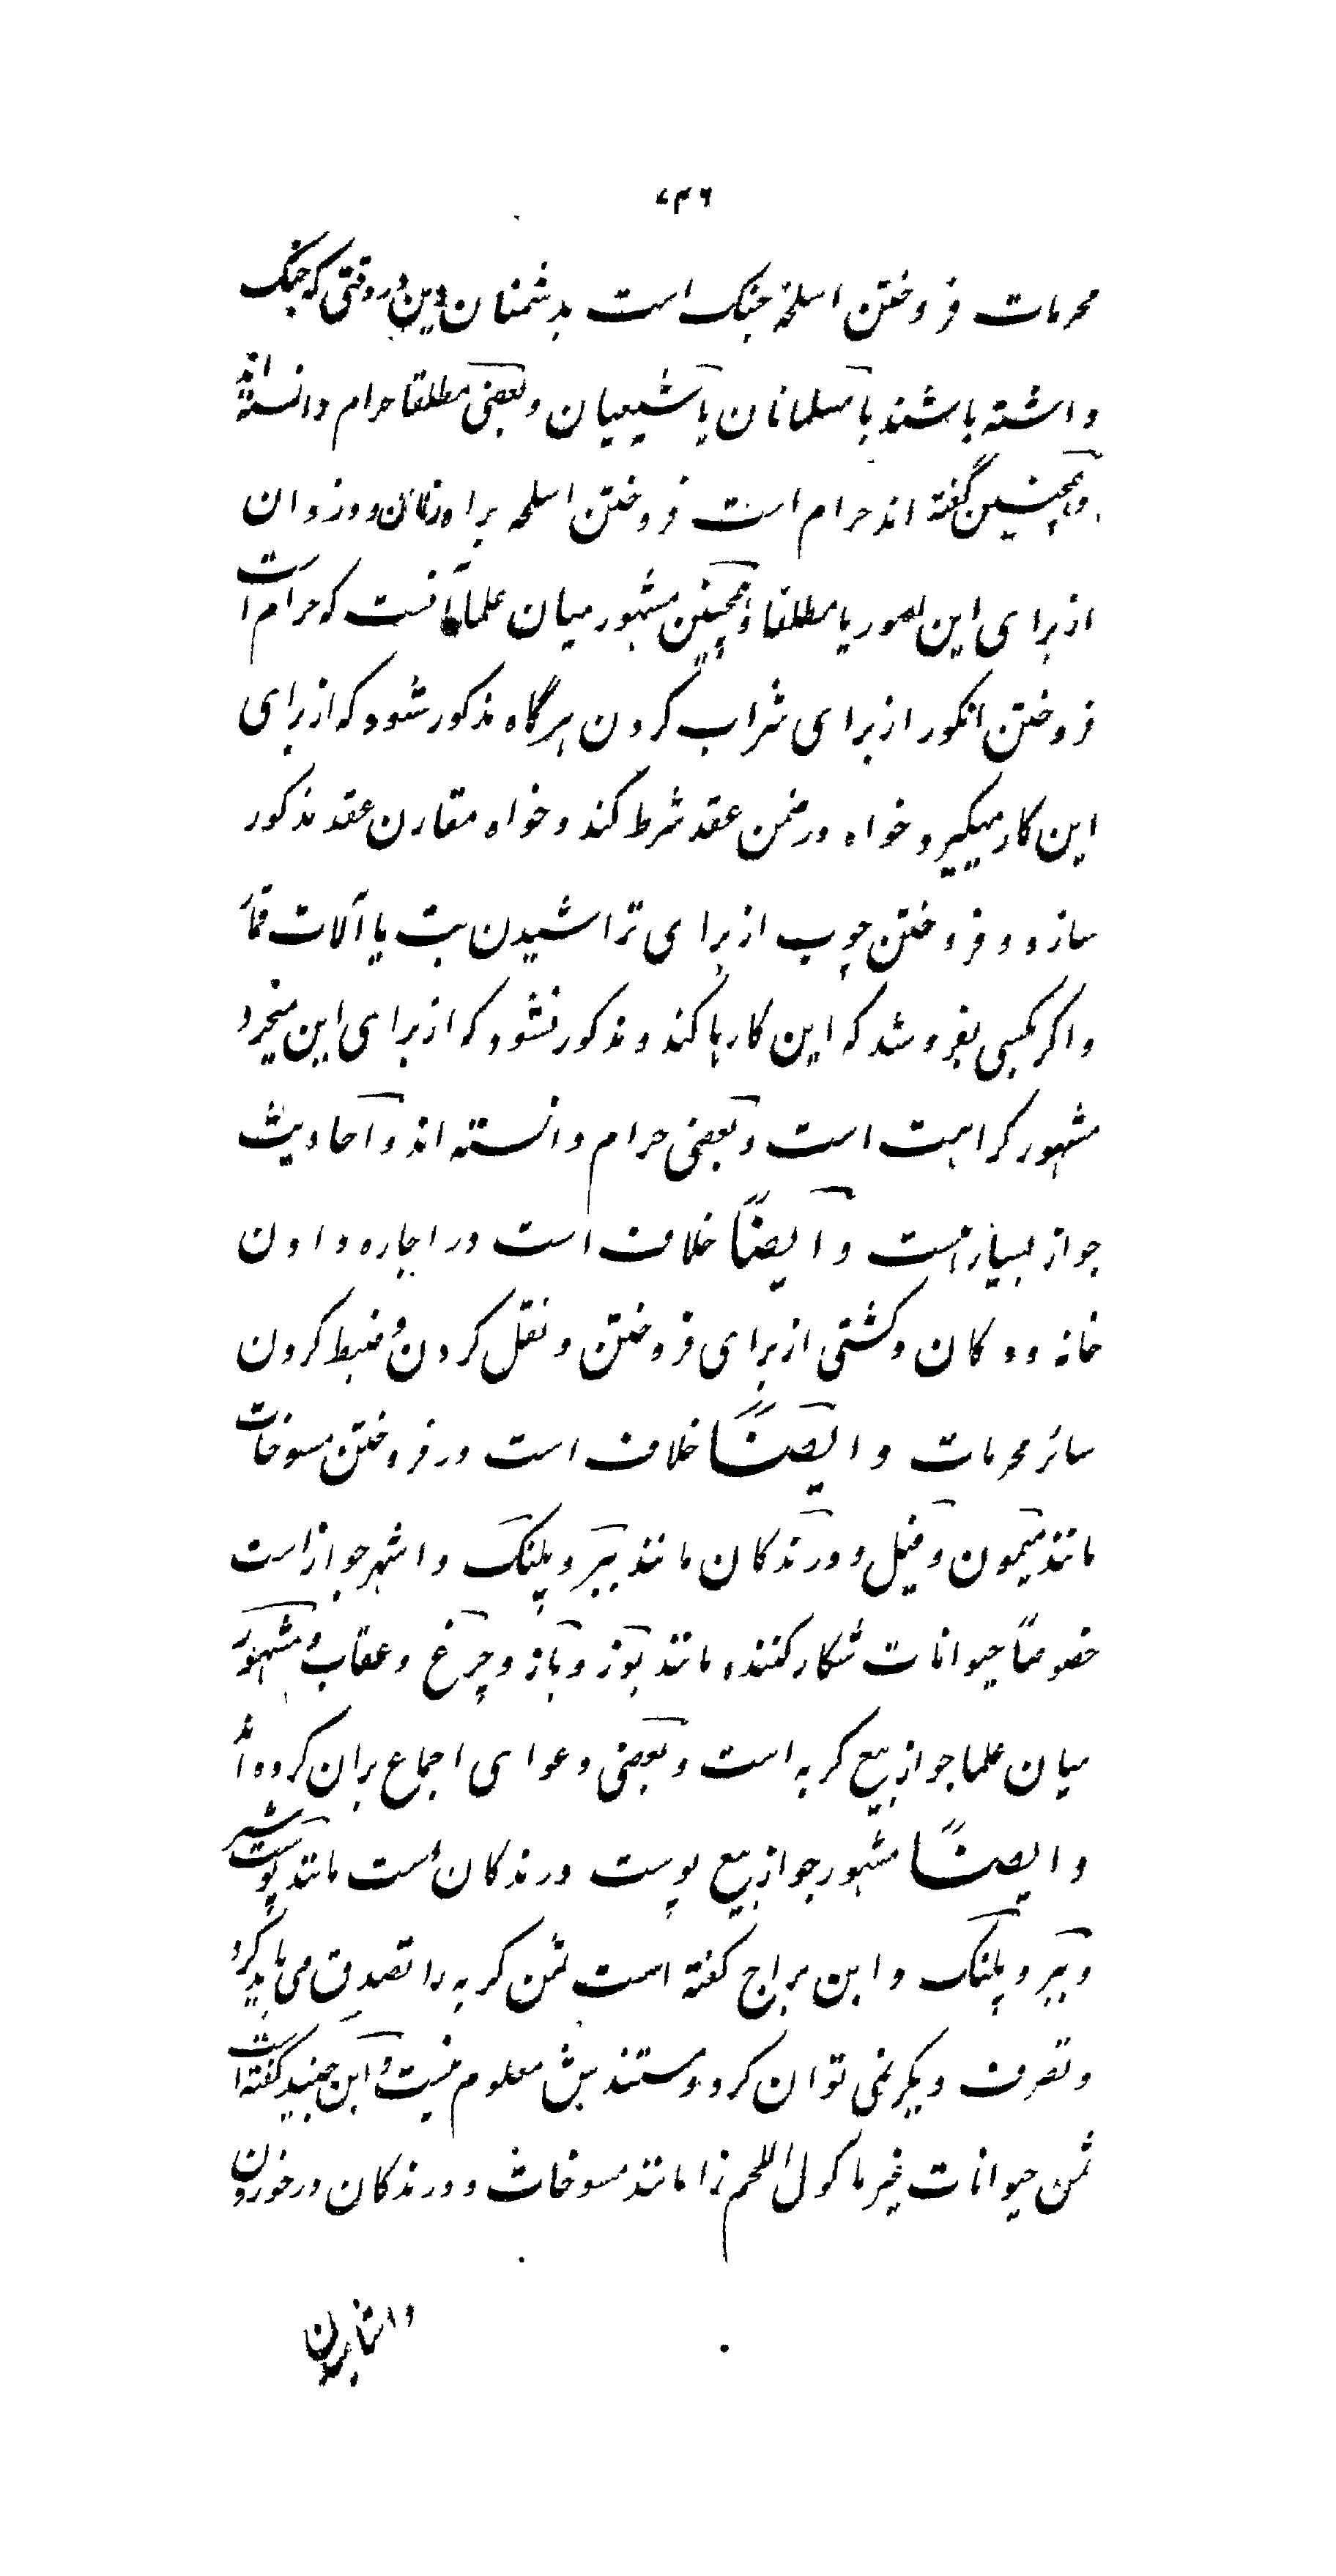 ۷۳۶
محرمات فروختن اسلحهٔ جنک است بدشمنان دین در وقتی که جنک
داشته باشند با مسلمانان یا شیعیان و بعضی مطلقا حرام دانسته‌اند
و همچنین گفته اند حرام است فروختن اسلحه براه زنان و دزدان
از برای این امور یا مطلقا و همچنین مشهور میان علما آنست که حرام است
فروختن انکور از برای شراب کردن هرگاه مذکور شود که از برای
این کار میکیرد خواه در ضمن عقد شرط کند و خواه مقارن عقد مذکور
سازد و فروختن چوب از برای تراشیدن بت یا آلات قمار
و اکر بکسی بفروشد که این کارها کند و مذکور نشود که از برای این میخرد
مشهور کراهت است و بعضی حرام دانسته اند و احادیث
جواز بسیار است و ایضًا خلاف است در اجاره دادن
خانه و دکان و کشتی از برای فروختن و نقل کردن و ضبط کردن
سائر محرمات و ایضًا خلاف است در فروختن مسوخات
مانند میمون و فیل و درندکان مانند ببر و پلنک و اشهر جواز است
خصوصًا حیوانات شکار کننده مانند یوز و باز و چرغ و عقاب و مشهور
میان علما جواز بیع کربه است و بعضی دعوای اجماع بران کرده‌اند
و ایضًا مشهور جواز بیع پوست درندکان است مانند پوست شیر
و ببر و پلنک و ابن براج کفته است ثمن کربه را تصدق می باید کرد
و تصرف دیکر نمی توان کرد و مستندش معلوم نیست و ابن جنید کفته است
ثمن حیوانات غیر ماکول اللحم را مانند مسوخات و درندکان در خوردن